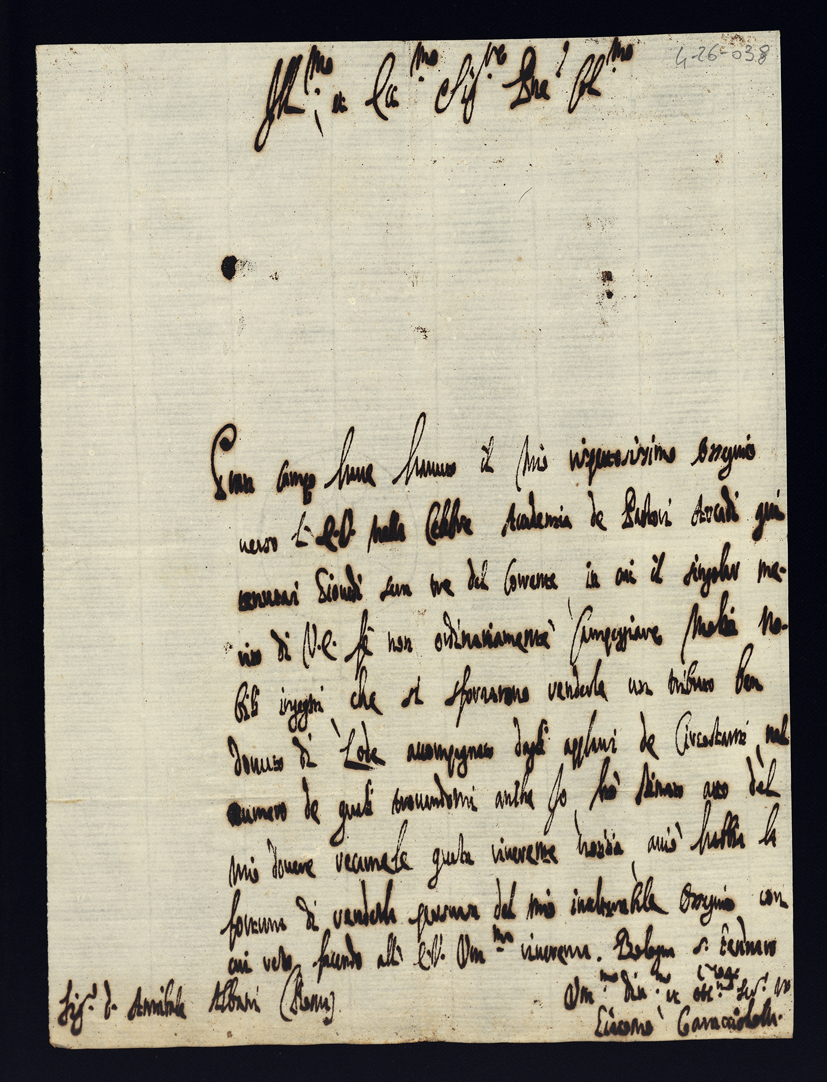 4-26-038
Ill.mo et Ecc.mo Sig.re Pne Col.mo
Gran campo have havuto il mio rispettosissimo ossequio
verso l' E.V. nella Celebre Academia de Pastori Arcadi qui
tenutasi Giovedì sera tre del Corrente in cui il singolar me-
rito di V.E. fè non ordinariamente Campeggiare Molti No-
bili ingegni che si sforzarono renderle un tributo ben
dovuto di Lode accompagnato dagli applausi de Circostanti, nel
numero de quali trovandomi anche Io hò stimato atto del
mio dovere recarnele questa riverente notizia, acciò habbia la
fortuna di renderla persuasa del mio inalterabile Ossequio con
cui resto facendo all' E.V. Um.ma riverenza. Bologna
Um.mo Div.mo et Obl.mo Ser.re
Sig.r D. Annibale Albani (Roma)
Giacomo